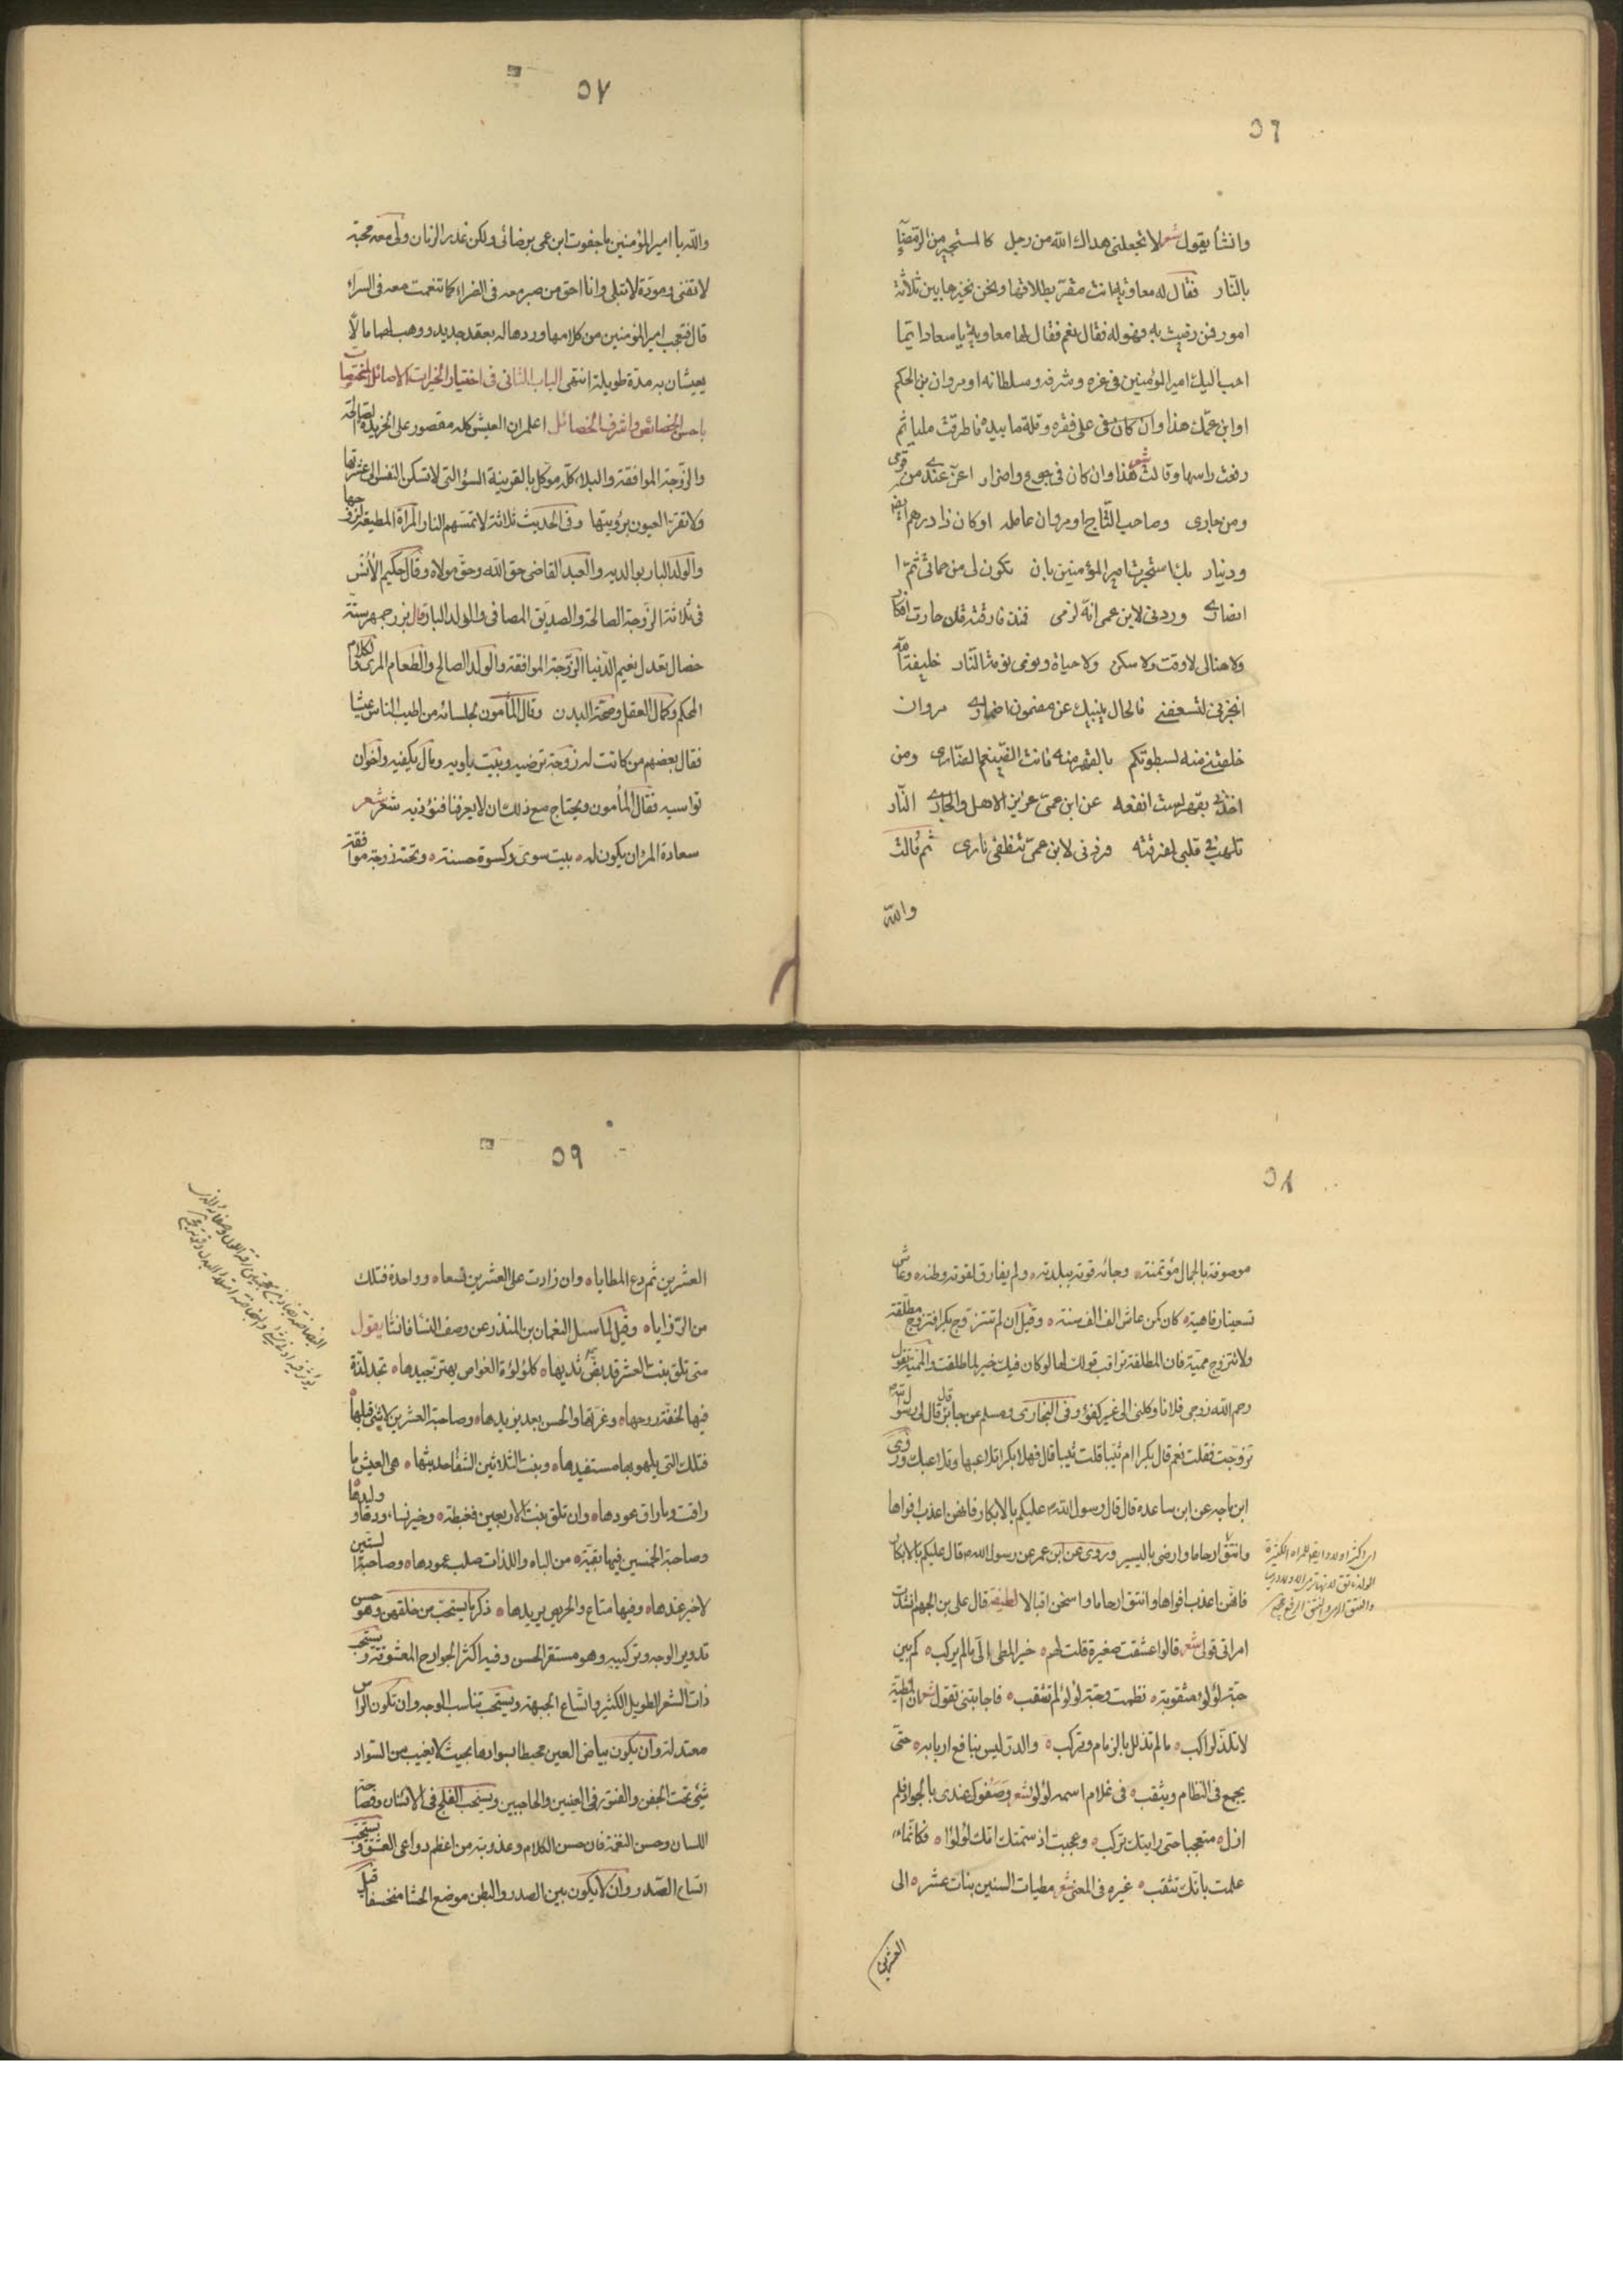 ٥٦
وانشأ يقول شعر لا تجعلنى هداك الله من رجل كالمستجير من الرمضاء
بالنار فقال له معاوية انت مقر بطلاقها ونحن نخيرها بين ثلاثة
امور فمن رضيت به فهو له فقال نعم فقال لها معاوية يا سعاد ايما
احب اليك امير المؤمنين فى عزه وشرفه وسلطانه او مروان بن الحكم
او ابن عمك هذا وان كان فى على فقره وقلة ما بيده فاطرقت مليا ثم
رفعت راسها وقالت شعر هذا وان كان فى جوع واضرار اعز عندى من قومى
ومن جارى وصاحب التاج او مروان عامله او كان ذا درهم
ودينار استجرت امير المؤمنين بان تكون لى من حماتى ثم
انصارى وردنى لابن عمى انه لزمى
ولا هنالى لا وقت ولا سكن ولا حياة ونومى النار خليفة الله
انجزنى فالحال ينبيك عن مضمون اضمارى مروان
منه لسطوتكم بالقهر منه فانت الضيغم الضارى ومن
اخذنى بقهر لست انفعه عن ابن عمى عزيز الاهل والجار النار
تلهب فى قلبى لفرقته فردنى لابن عمى تنطفى نارى ثم قالت
والله
٥٧
والله يا امير المؤمنين ما جفوت ابن عمى برضائى ولكن غدر الزمان ولى معه محبة
لا تفنى ومودة لا تبلى وانا احق من صبر معه فى الضراء كما تنعمت معه فى السراء
قال فتعجب امير المؤمنين من كلامها وردها له بعقد جديد ووهب لهما مالا
يعيشان به مدة طويلة انتهى الباب الثانى فى اختيار الخيرات الاصائل المختصات
باحسن الخصائص واشرف الخصائل اعلم ان العيش كله مقصور على الخريدة الصالحة
والزوجة الموافقة والبلاء كله موكل بالقرينة السؤ التى لا تسكن النفس الى عشرتها
ولا تقر العيون برؤيتها وفى الحديث ثلاثة لا تمسهم النار المرأة المطيعة لزوجها
والولد البار بوالديه والعبد القاضى حق الله وحق مولاه وقال حكيم الأنس
فى ثلاثة الزوجة الصالحة والصديق المصافى والولد البار قال بزرجمهر ستة
خصال تعدل بنعيم الدنيا الزوجة الموافقة والولد الصالح والطعام المرى والكلام
المحكم وكمال العقل وصحة البدن وقال المأمون لجلسائه من اطيب الناس عيشا
فقال بعضهم من كانت له زوجة ترضيه وبيت يأويه ومال يكفيه واخوان
تواسيه فقال المأمون ويحتاج مع ذلك ان لا يعرفنا فنؤذيه شعر
سعادة المرء ان يكون له بيت سوى وكسوة حسنة وتحته زوجة موافقة
٥٨
موصوفة بالجمال مؤتمنة وجائه قوته ببلدته ولم يفارق لقوته وطنه وعاش
تسعينا رفاهية كان كمن عاش الف الف سنة وقيل ان لم تتزوج بكرا فتزوج مطلقة
ولا تتزوج مميتة فان المطلقة تراقب قولك لها لو كان فيك خير لما طلقت والمميتة تقول
رحم الله زوجى فلانا وكلنى الى غير كفؤ وفى البخارى ومسلم عن جابر قال قال لى رسول الله
تزوجت فقلت نعم قال بكرا ام ثيبا قلت ثيبا قال فهلا بكرا تلاعبها وتلاعبك وروى
ابن ماجه عن ابن ساعدة قال قال رسول الله عليكم بالابكار فانهن اعذب افواها
وانتق ارحاما وارضى باليسير وروى عن ابن عمر عن رسول الله قال عليكم بالابكار
فانهن اعذب افواها وانتق ارحاما واسخن اقبالا لطيفة قال على بن الجهم انشدت
امراتى قولى شعر قالوا عشقت صغيرة قلت لهم خير المطى الى ما لم يركب كم بين
حبة لؤلؤ مثقوبة نظمت وحبة لؤلؤ لم تثقب فاجابتنى تقول شعر ان المطية
لا تلذ لراكب ما لم تذلل بالزمام وتركب والدر ليس بنافع اربابه حتى
يجمع فى النظام ويثقب فى غلام اسمه لؤلؤ شعر وصفوك عندى بالجواد فلم
ازل متعجبا حتى رايتك تركب وعجبت اذ سمتك امك لؤلؤا فكانما
علمت بانك تثقب غيره فى المعنى شعر مطيات السنين بنات عشر الى
العشرين
٥٩
العشرين ثم دع المطايا وان زادت على العشرين تسعا وواحدة فتلك
من الرزايا وقيل لما سئل النعمان بن المنذر عن وصف النسا فانشأ يقول
متى تلق بنت العشر قد بض ثديها كلؤلؤة الغواص يهتز جيدها تجد لذة
فيها لخفة روحها وغرتها والحسن بعد يزيدها وصاحبة العشرين لا شئ قبلها
فتلك التى يلهو بها مستفيدها وبنت الثلاثين الشفا حديثها هى العيش ما
راقت وما راق عودها وان تلق بنت الاربعين فغبطة وخير نساء ودها وليدها
وصاحبة الخمسين فيها بقية من الباه واللذات صلب عمودها وصاحبة الستين
لا خير عندها وفيها متاع والحريص يريدها ذكر ما يستحب من خلقهن وهو حسن
تدوير الوجه وتركيبه وهو مستقر الحسن وفيه اكثر الجوارح المعشوقة ويستحب
ذات الشعر الطويل الكثير واتساع الجبهة ويستحب تناسب الوجه وان تكون الراس
معتدلة وان يكون بياض العين محيطا بسوادها بحيث لا يغيب من السواد
شئ تحت الجفن والفتور فى العينين والحاجبين ويستحب الفلج فى الاسنان وفصاحة
اللسان وحسن النغمة فان حسن الكلام وعذوبته من اعظم دواعى العشق ويستحب
اتساع الصدر وان لا يكون بين الصدر والبطن موضع الحشا منخسفا قيل